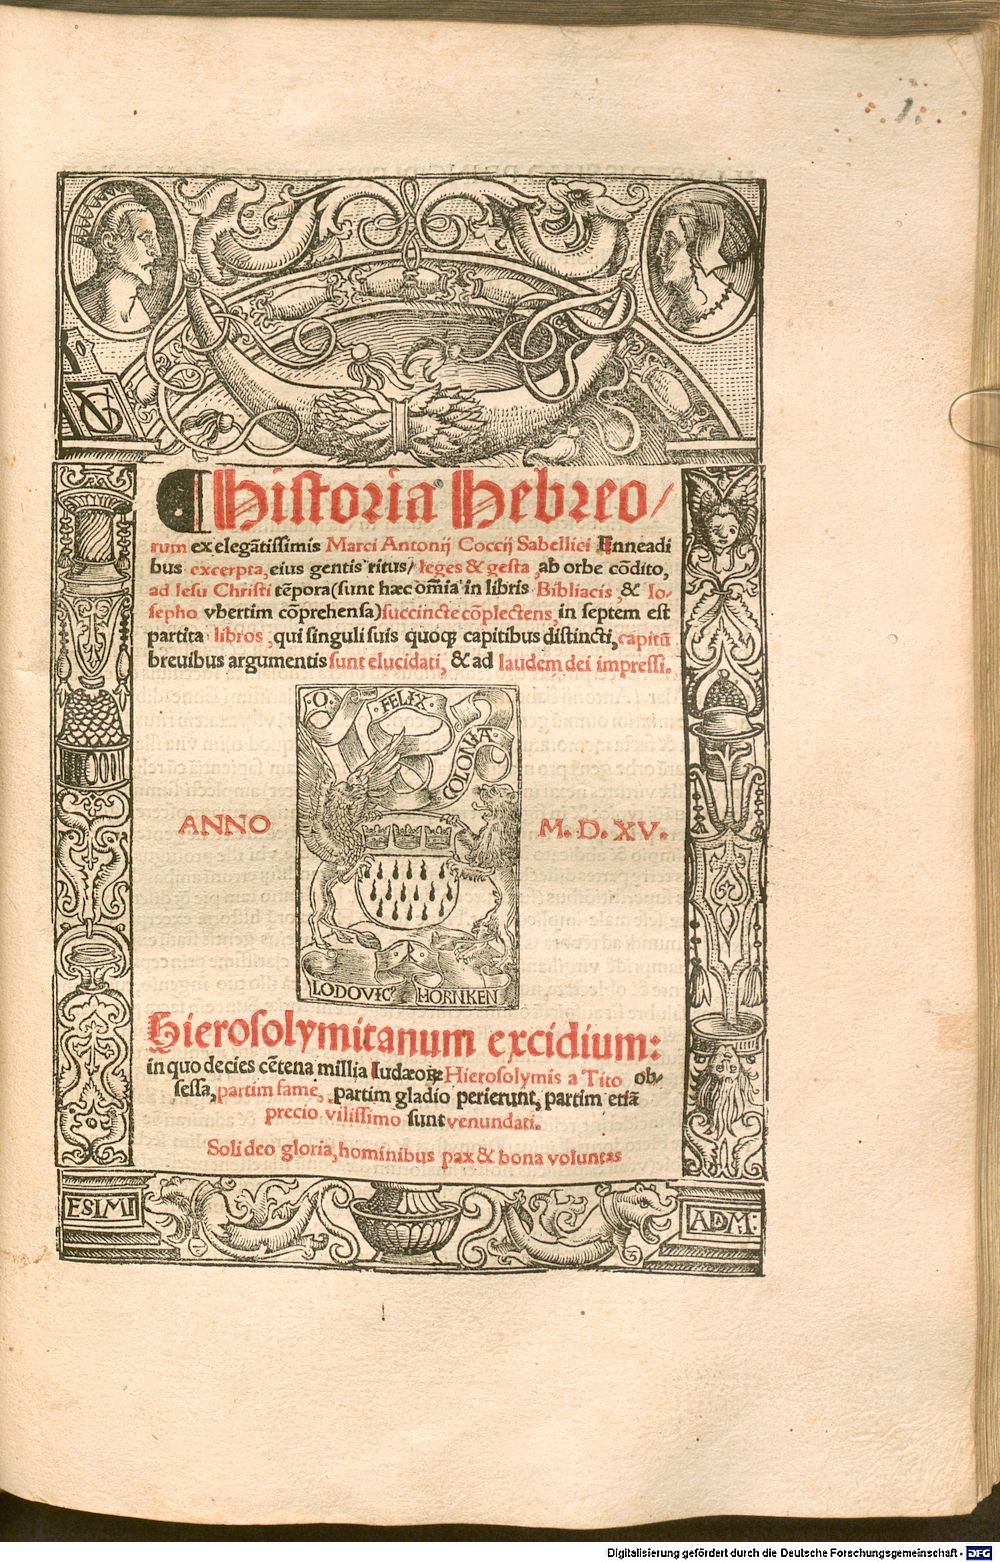 1.
NG
Historia Hebreo/
rum ex elegãtissimis Marci Antonij Coccij Sabellici Enneadi
bus excerpta, eius gentis ritus/ leges & gesta ,ab orbe cõdito,
ad Iesu Christi tẽpora(sunt hæc om̃ia in libris Bibliacis, & Io-
sepho vbertim cõprehensa)succincte cõplectens, in septem est
partita libros , qui singuli suis quoqȝ capitibus distincti, capitũ
breuibus argumentis sunt elucidati, & ad laudem dei impressi.
O. FELIX.
COLONIA.
ANNO M. D. XV.
LODOVICꝰ HORNKEN
Hierosolymitanum excidium:
in quo decies cẽtena millia Iudæoꝝ Hierosolymis a Tito ob-
sessa, partim fame, partim gladio perierunt, partim etiã
precio vilissimo sunt venundati.
Soli deo gloria, hominibus pax & bona voluntas
ESIMI ADM:
Digitalisierung gefördert durch die Deutsche Forschungsgemeinschaft - DFG